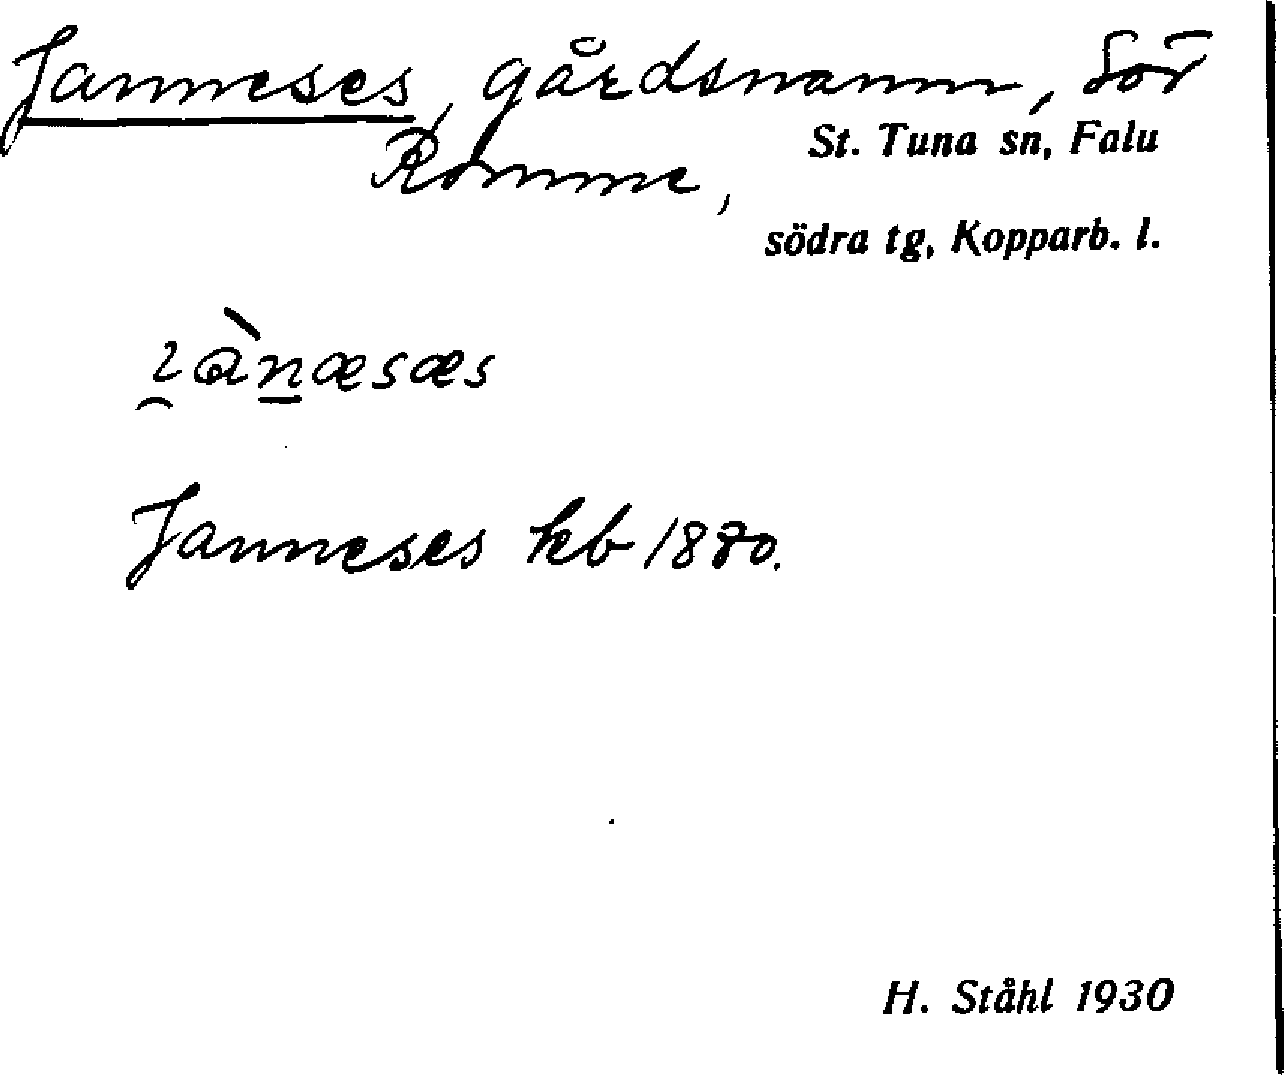 Janneses, gårdsnamn, Sör
Romme,
St. Tuna sn, Falu
södra tg, Kopparb. l.
Janneses kb 1880.
H. Ståhl 1930